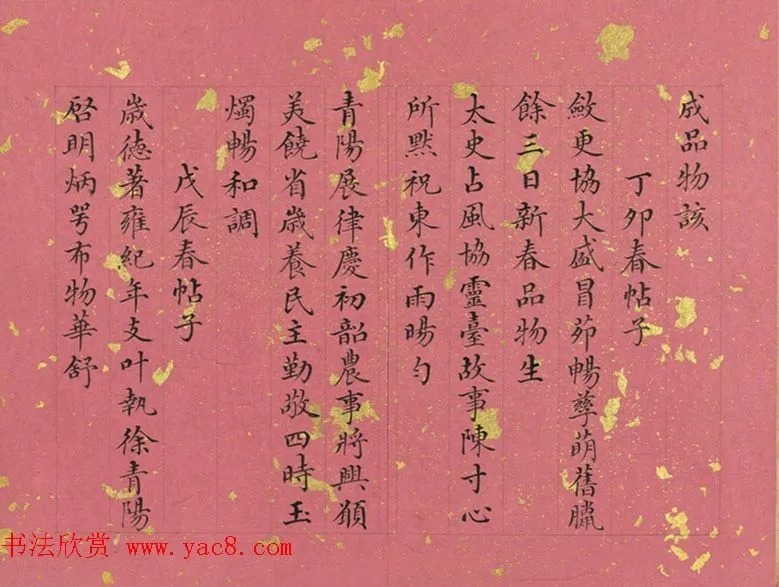 成品物該
丁卯春帖子
斂更協大盛冒茆暢孳萌舊臘
餘三日新春品物生
太史占風協靈臺故事陳寸心
所黙祝東作雨暘勻
青陽展律慶初韶農事將興願
美饒省歲養民主勤敬四時玉
燭暢和調
戊辰春帖子
歲徳著雍紀年支叶執徐青陽
啓明炳咢布物華舒
书法欣赏 www.yac8.com